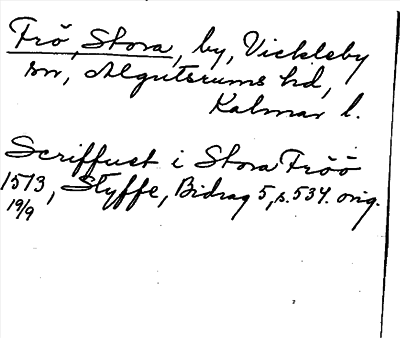 Frö, Stora, by, Vickleby
sn, Algutsrums hd,
Kalmar l.
Scriffuet i Stora Fröö
1513, Styffe, Bidrag 5, s. 534. orig.
19/9